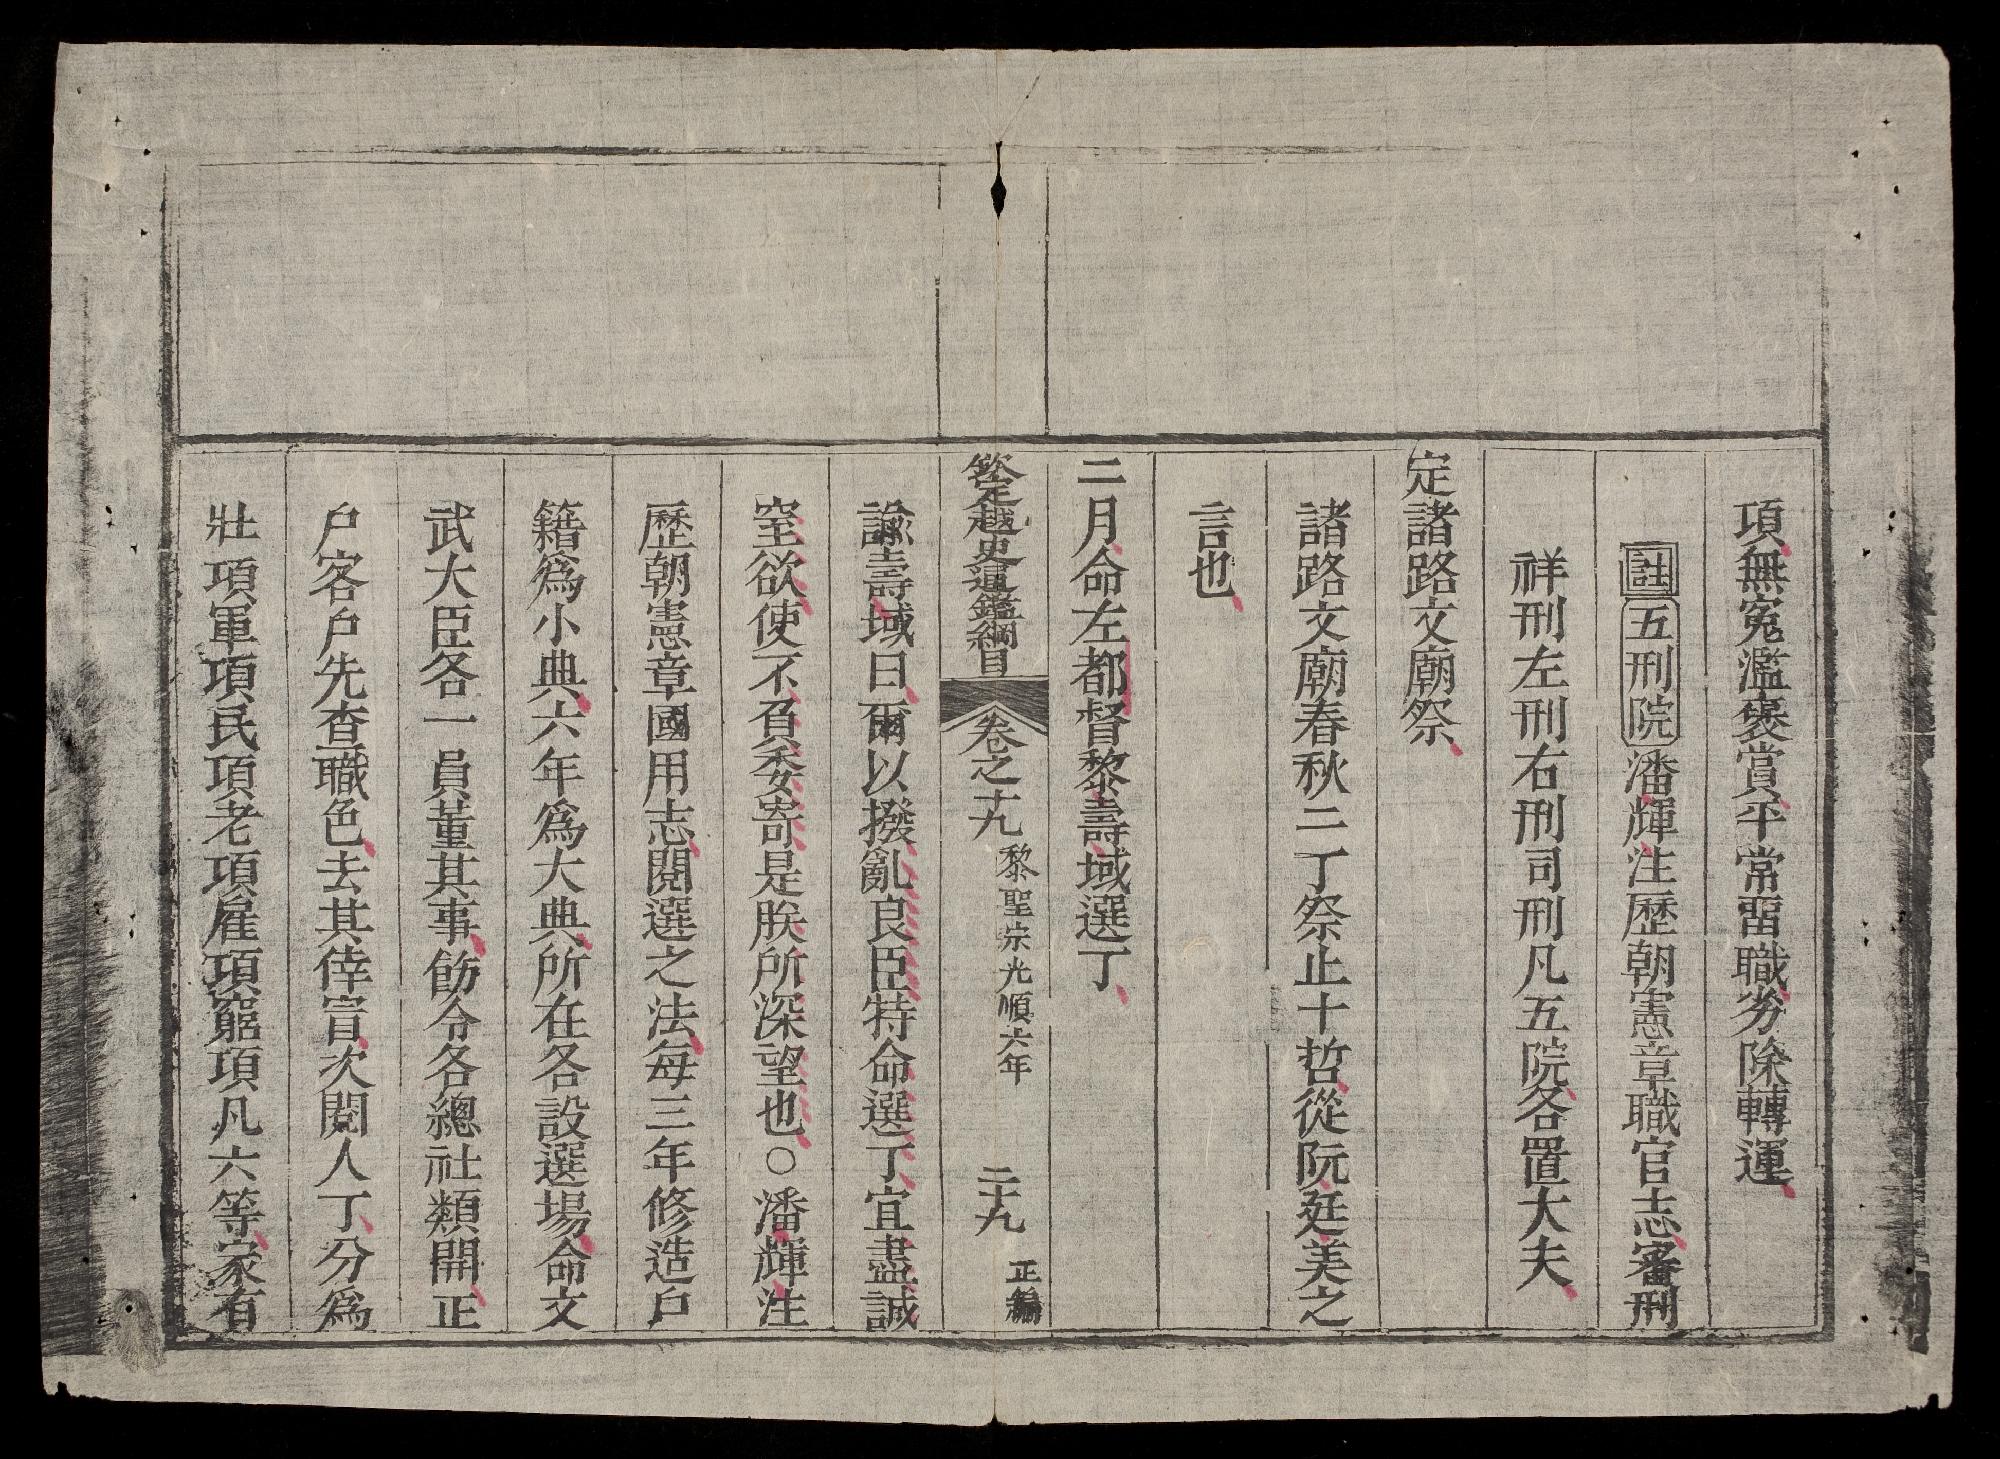 項無冤濫褒賞平常畱職劣除轉運
註五刑院潘輝注歷朝憲章職官志審刑
祥刑左刑右刑司刑凡五院各置大夫
定諸路文廟祭
諸路文廟春秋二丁祭止十哲從阮廷美之
言也
二月命左都督黎壽域選丁
欽定越史通鑑綱目 卷之十九 黎聖宗光順六年 二十九 正編
諭壽域曰爾以撥亂良臣特命選丁宜盡誠
窒欲使不負委寄是朕所深望也○潘輝注
歷朝憲章國用志閱選之法每三年修造户
籍爲小典六年爲大典所在各設選場命文
武大臣各一員董其事飭令各總社類開正
户客户先查職色去其倖冒次閱人丁分爲
壯項軍項民項老項雇項窮項凡六等家有